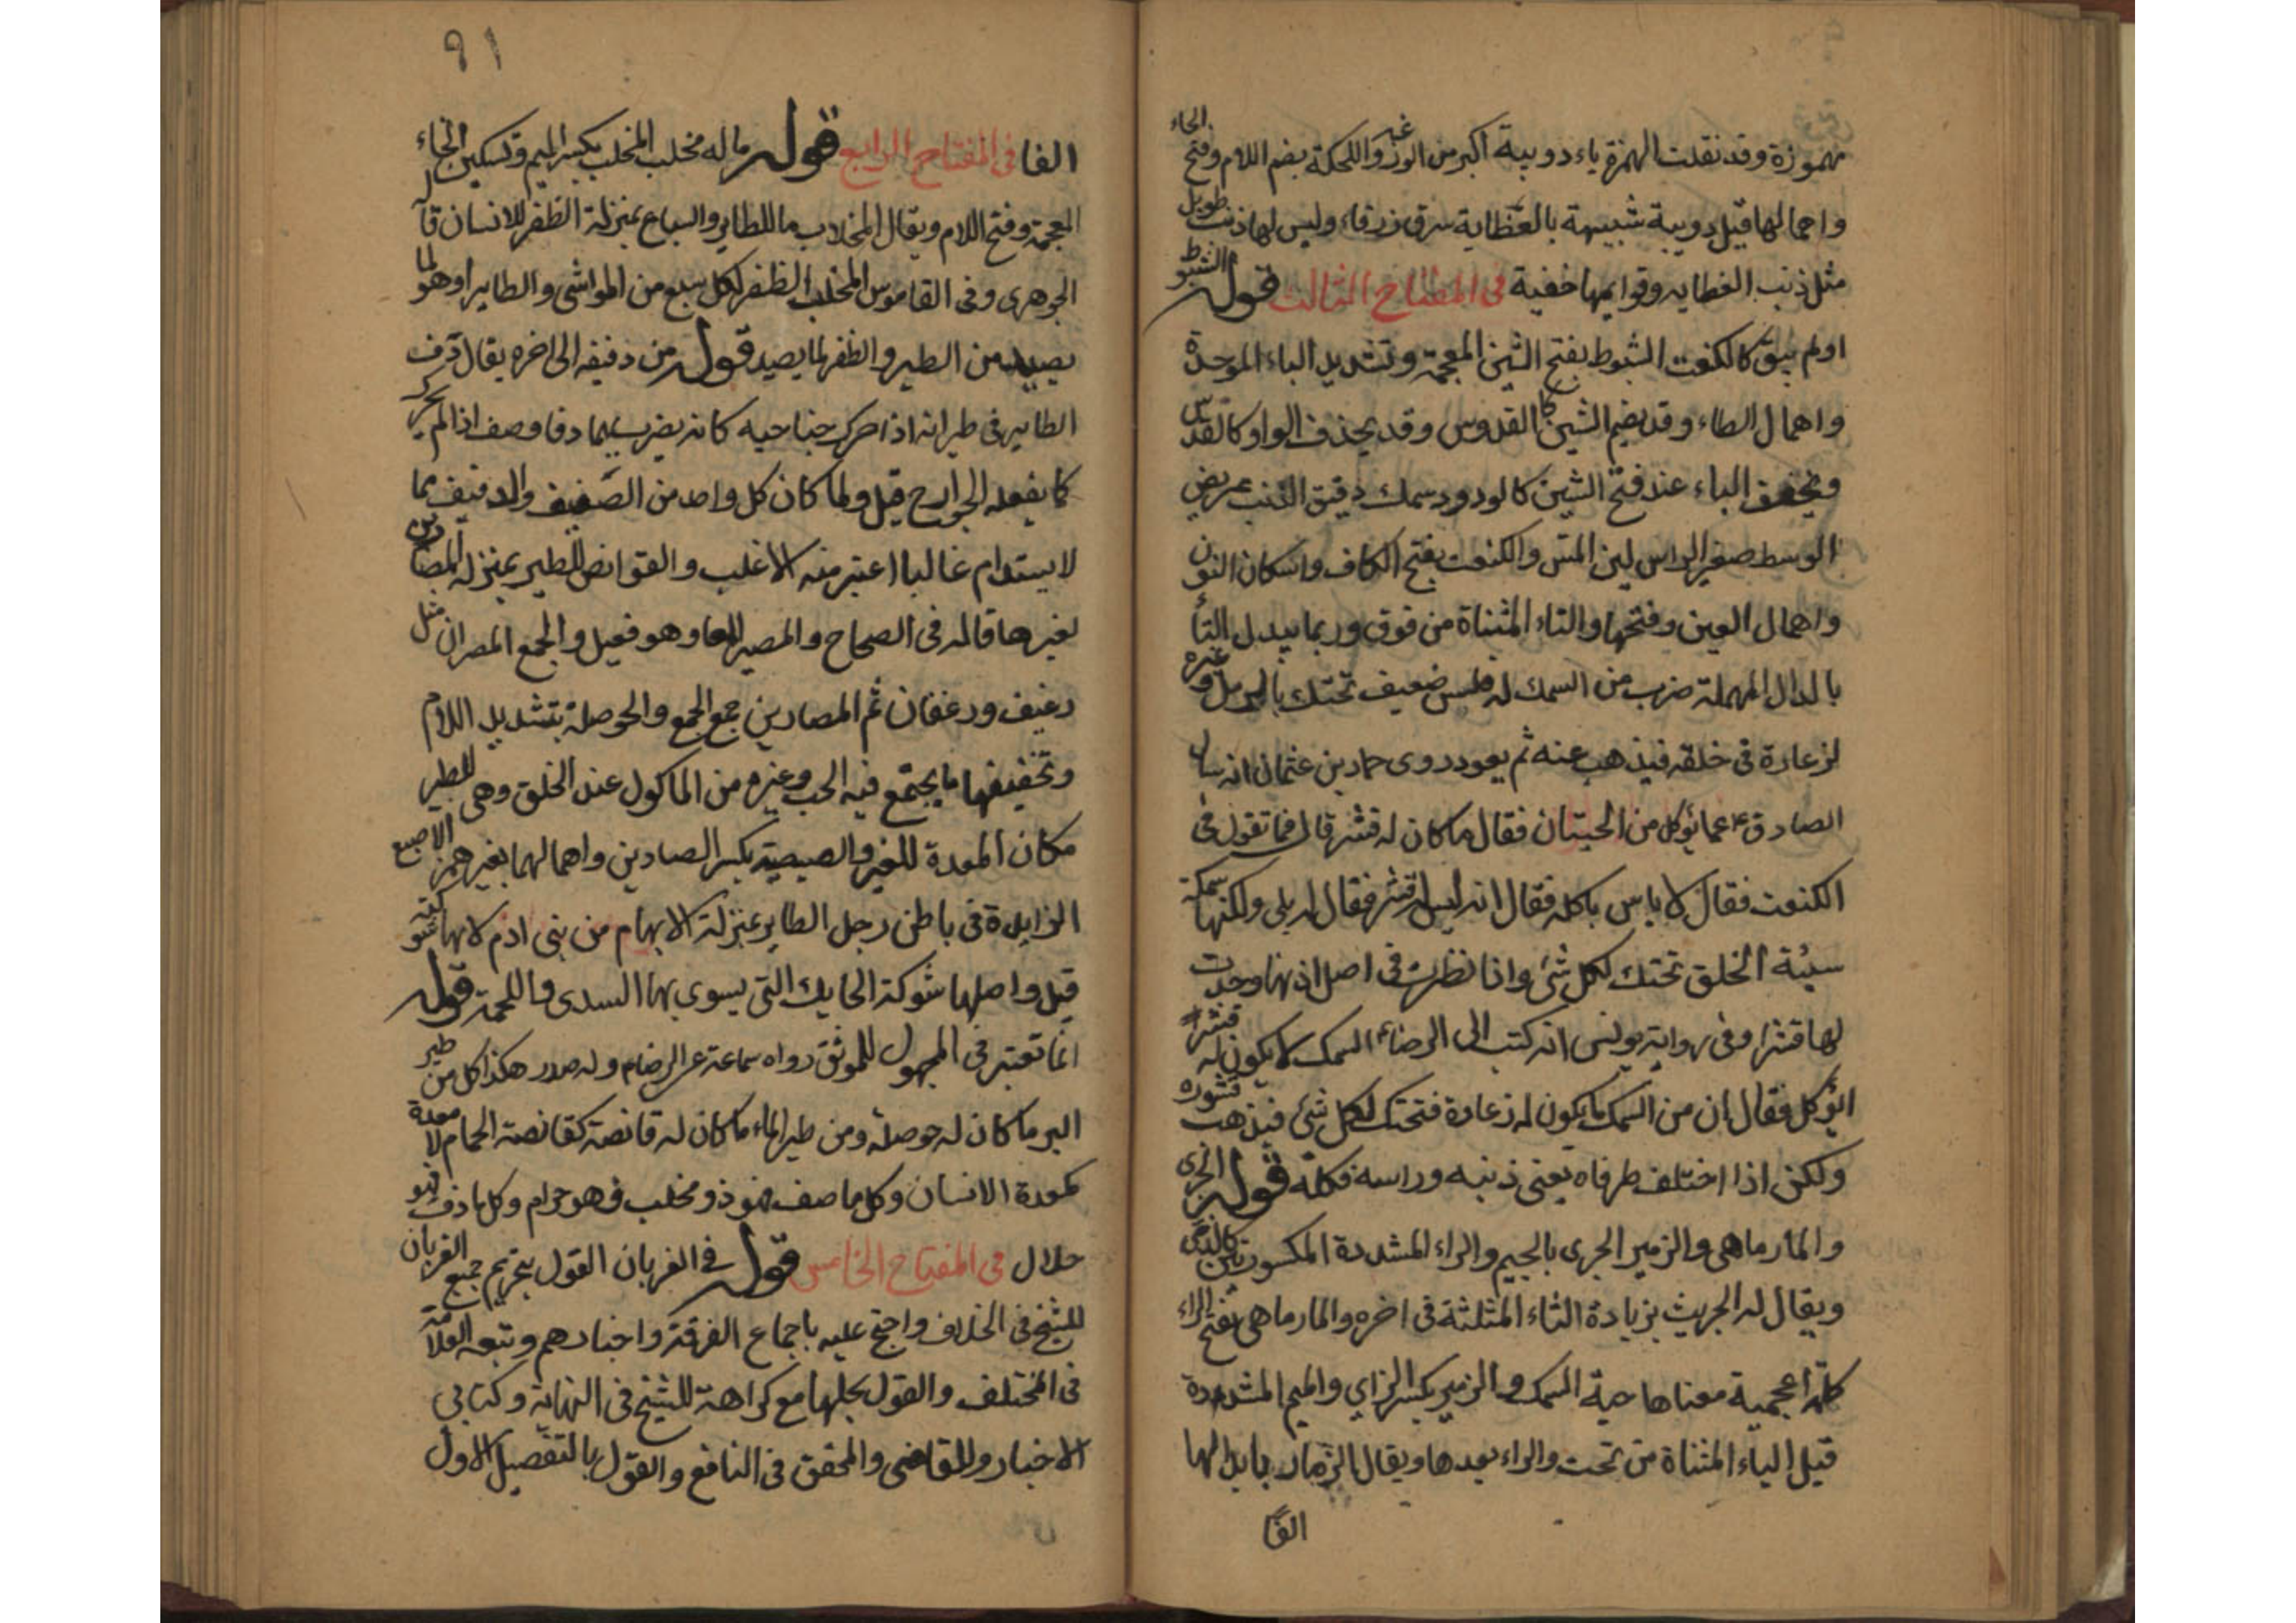 مهموزة وقد نقلت الهمزة ياء دويبة اكبر من الوزغة واللحكة بضم اللام وفتح الحاء
واهمالها قيل دويبة شبيهة بالعظاية سرق زرقاء وليس لها ذنب طويل
مثل ذنب العظايه وقوايمها خفية في المفتاح الثالث قوله الشبوط
او لم يبق كالكنعت الشبوط بفتح الشين المعجمة وتشديد الباء الموحدة
واهمال الطاء وقد يضم الشين كالقدوس وقد يحذف الواو كالقدس
وتخفف الباء عند فتح الشين كالودود سمك دقيق الذنب عريض
الوسط صغير الراس لين المس والكنعت بفتح الكاف واسكان النون
واهمال العين وفتحها والتاء المثناة من فوق وربما يبدل التا
بالدال المهملة ضرب من السمك له فلس ضعيف تحتك بالرمل وغيره
لزعارة في خلقه فيذهب عنه ثم يعود روى حماد بن عثمان انه سال
الصادق ع عما يؤكل من الحيتان فقال ما كان له قشر قال فما تقول في
الكنعت فقال لا باس باكله فقال انه ليس له قشر فقال له بلى ولكنها سمكة
سيئة الخلق تحتك لكل شئ واذا نظرت في اصل اذنها وجدت
لها قشرا وفي رواية يونس انه كتب الى الرضاء السمك لا يكون له قشر
ايؤكل فقال ان من السمك ما يكون له زعارة فتحتك لكل شئ فيذهب قشوره
ولكن اذا اختلف طرفاه يعني ذنبه وراسه فكله قوله الجرى
والمارماهى والزمير الجرى بالجيم والراء المشددة المكسورتين كالذمى
ويقال له الجريث بزيادة الثاء المثلثة في اخره والمارماهى بفتح الراء
كلمة اعجمية معناها حية السمك والزمير بكسر الزاي والميم المشددة
قيل الياء المثناة من تحت والراء بعدها ويقال الزمار بابدالها
الفا
٩١
الفا في المفتاح الرابع قوله ما له مخلب المخلب بكسر الميم وتسكين الخاء
المعجمة وفتح اللام ويقال المخلاب ما للطاير والسباع بمنزلة الظفر للانسان قاله
الجوهرى وفي القاموس المخلب الظفر لكل سبع من المواشى والطاير او هو لما
يصيد من الطير والظفر لما يصيد قوله من دفيفه الى اخره يقال دف
الطاير في طيرانه اذا حرك جناحيه كانه يضرب بهما دفا وصف اذا لم يحرك
كما يفعله الجوارح قيل ولما كان كل واحد من الصفيف والدفيف مما
لا يستدام غالبا اعتبر منه الاغلب والقوانص للطير بمنزلة المصارين
لغيرها قاله في الصحاح والمصير المعا وهو فعيل والجمع المصران مثل
رغيف ورغفان ثم المصارين جمع الجمع والحوصلة بتشديد اللام
وتخفيفها ما يجتمع فيه الحب وغيره من الماكول عند الحلق وهى للطير
مكان المعدة للغير والصيصية بكسر الصادين واهمالهما بغير همز الاصبع
الزايدة في باطن رجل الطاير بمنزلة الابهام من بنى ادم لانها شوكته
قيل واصلها شوكة الحايك التى يسوى بها السدى واللحمة قوله
انما تعتبر في المجهول للموثق رواه سماعة عن الرضا م وله صدر هكذا كل من طير
البر ما كان له حوصلة ومن طير الماء ما كان له قانصة كقانصة الحمام لا معدة
كمعدة الانسان وكل ما صف فهو ذو مخلب فهو حرام وكل ما دف فهو
حلال في المفتاح الخامس قوله في الغربان القول بتحريم جميع الغربان
للشيخ في الخلاف واحتج عليه باجماع الفرقة واخبارهم وتبعه العلامة
في المختلف والقول بحلها مع كراهة للشيخ في النهاية وكتابي
الاخبار وللقاضى والمحقق في النافع والقول بالتفصيل الاول